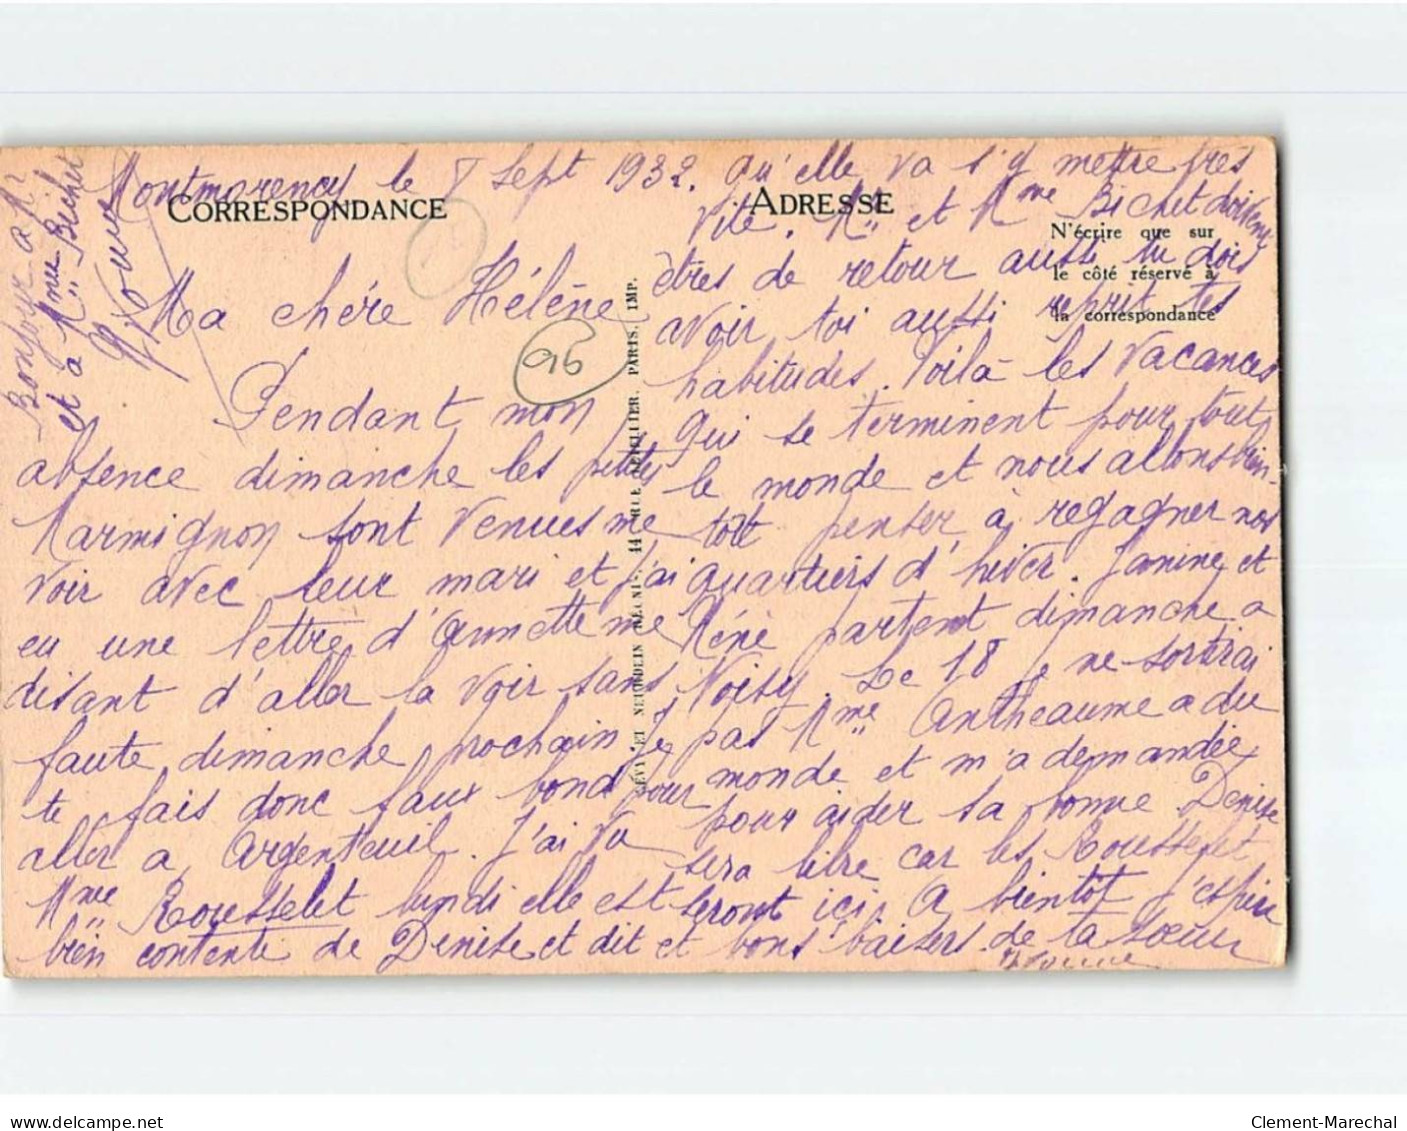 Montmorency le 8 Sept 1932.
CORRESPONDANCE
Ma chère Hélène
Pendant mon
absence dimanche les petites
Marmignon sont venues me
voir avec leur mari et j'ai
eu une lettre d'Annette me
disant d'aller la voir sans
faute dimanche prochain. Je
te fais donc faux bond pour
aller a Argenteuil. J'ai vu
Mme Rousselet lundi elle est
bien contente de Denise et dit
qu'elle va s'y mettre très
ADRESSE
vite. Mr et Mme Bichet doivent
N'écrire que sur
le côté réservé à
la correspondance
êtres de retour aussi tu dois
avoir toi aussi reprit tes
habitudes. Voilà les vacances
qui se terminent pour tout
le monde et nous allons bien-
tôt penser à regagner nos
quartiers d'hiver. Janine et
Réné partent dimanche a
Noisy. Le 18 je ne sortirai
pas Mme Antheaume a du
monde et m'a demandée
pour aider sa bonne Denise
sera libre car les Rousselet
seront ici. A bientôt j'espère
et bons baisers de ta soeur
Yvonne
Bonjour a Mr
et a Mme Bichet
Yvonne
96
LÉVY ET NEURDEIN RÉUNIS. 44 RUE LETELLIER. PARIS. IMP.
Clement-Marechal
www.delcampe.net